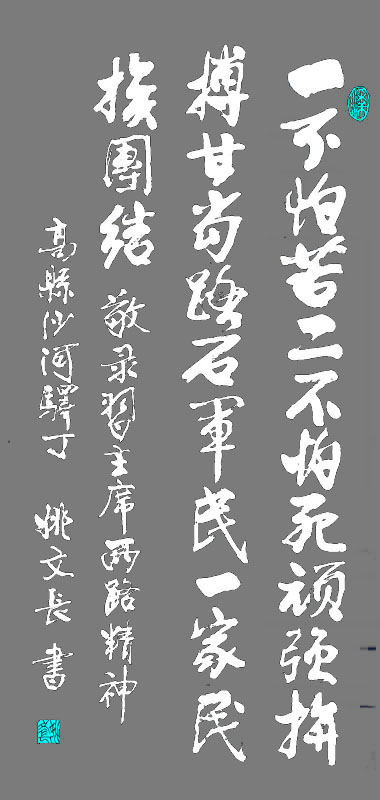 一不怕苦二不怕死顽强拚
搏甘当路石軍民一家民
族團結 敬录習主席两路精神
高縣沙河驛丁 姚文長 書